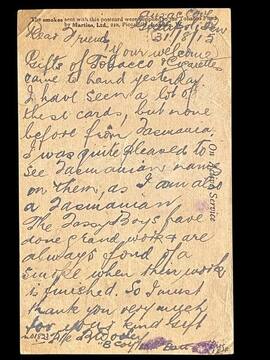 The smokes sent with this postcard were
by Martins, Ltd., 210, Piccadilly
Dear Friend,
31/8/17
Your welcome
Gifts of Tobacco & Cigarettes
came to hand yesterday
I have seen a lot of
these cards, but none
before from Tasmania.
I was quite pleased to
see Tasmanian name
on them, as I am also
a Tasmanian
The Tassy Boys have
done grand work & are
always fond of a
smoke when their work
is finished. So I must
thank you very much
for your kind gift
B Coy
On Active Service